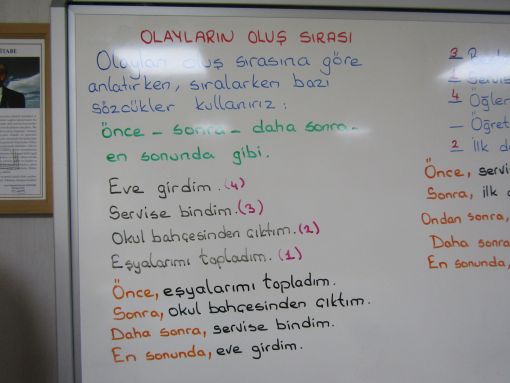 OLAYLARIN OLUŞ SIRASI
Olayları oluş sırasına göre
anlatırken, sıralarken bazı
sözcükler kullanırız :
Önce - sonra - daha sonra -
en sonunda gibi.
Eve girdim. (4)
Servise bindim. (3)
Okul bahçesinden çıktım. (2)
Eşyalarımı topladım. (1)
Önce, eşyalarımı topladım.
Sonra, okul bahçesinden çıktım.
Daha sonra, servise bindim.
En sonunda, eve girdim.
3
Servis
4 Öğlen
— Öğret
2 İlk d
Önce, servi
Sonra, ilk
Ondan sonra,
Daha sonra
En sonunda,
İTABE